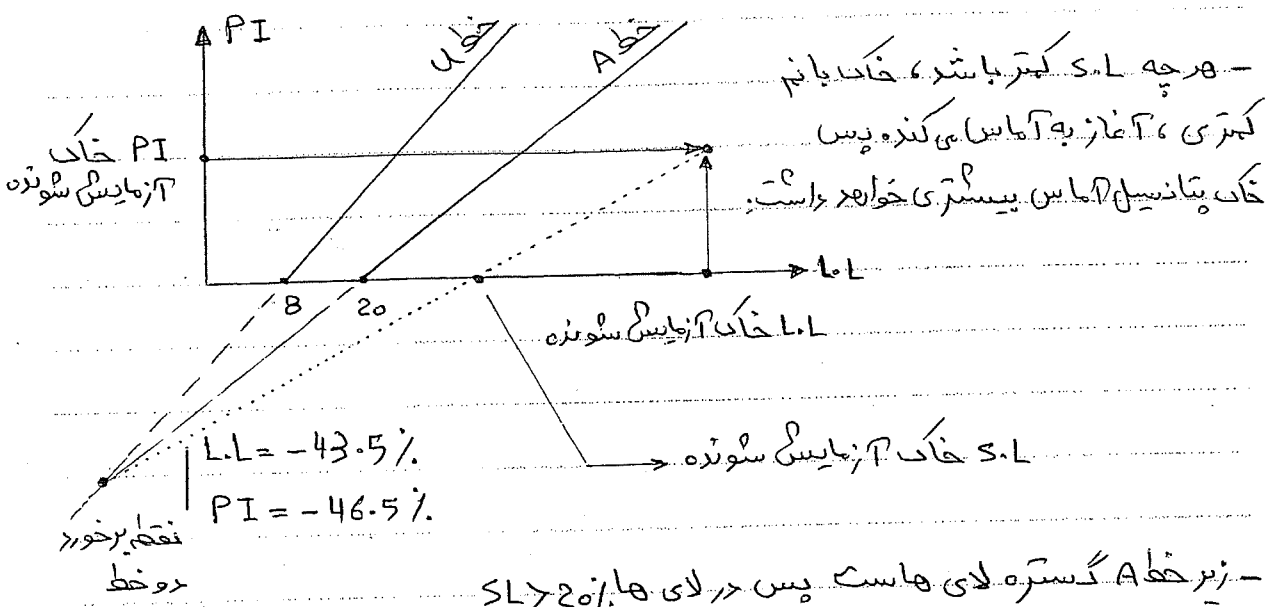 PI
خط U
خط A
- هر چه S.L کمتر باشد، خاک با نم
کمتری، آغاز به آماس می‌کند. پس
خاک پتانسیل آماس بیشتری خواهد داشت.
PI خاک
آزمایش شونده
8
20
L.L
L.L خاک آزمایش شونده
S.L خاک آزمایش شونده
L.L = -43.5 %
PI = -46.5 %
نقطه برخورد
دو خط
- زیر خط A گستره لای هاست پس در لای ها SL > 20%